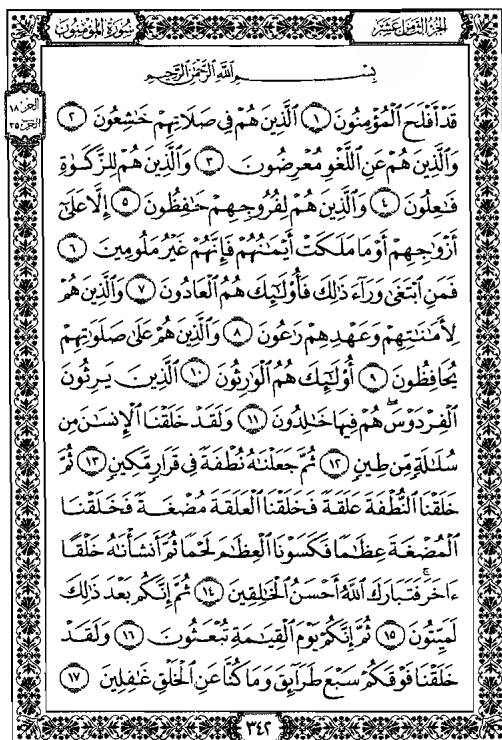 سُورَةُ المُؤْمِنُونَ الجُزْءُ الثَّامِنَ عَشَرَ
بِسْمِ اللَّهِ الرَّحْمَٰنِ الرَّحِيمِ
قَدْ أَفْلَحَ الْمُؤْمِنُونَ ١ الَّذِينَ هُمْ فِي صَلَاتِهِمْ خَٰشِعُونَ ٢
وَالَّذِينَ هُمْ عَنِ اللَّغْوِ مُعْرِضُونَ ٣ وَالَّذِينَ هُمْ لِلزَّكَوٰةِ
فَٰعِلُونَ ٤ وَالَّذِينَ هُمْ لِفُرُوجِهِمْ حَٰفِظُونَ ٥ إِلَّا عَلَىٰٓ
أَزْوَٰجِهِمْ أَوْ مَا مَلَكَتْ أَيْمَٰنُهُمْ فَإِنَّهُمْ غَيْرُ مَلُومِينَ ٦
فَمَنِ ابْتَغَىٰ وَرَآءَ ذَٰلِكَ فَأُوْلَٰٓئِكَ هُمُ الْعَادُونَ ٧ وَالَّذِينَ هُمْ
لِأَمَٰنَٰتِهِمْ وَعَهْدِهِمْ رَٰعُونَ ٨ وَالَّذِينَ هُمْ عَلَىٰ صَلَوَٰتِهِمْ
يُحَافِظُونَ ٩ أُوْلَٰٓئِكَ هُمُ الْوَٰرِثُونَ ١٠ الَّذِينَ يَرِثُونَ
الْفِرْدَوْسَ هُمْ فِيهَا خَٰلِدُونَ ١١ وَلَقَدْ خَلَقْنَا الْإِنسَٰنَ مِن
سُلَٰلَةٍ مِّن طِينٍ ١٢ ثُمَّ جَعَلْنَٰهُ نُطْفَةً فِي قَرَارٍ مَّكِينٍ ١٣ ثُمَّ
خَلَقْنَا النُّطْفَةَ عَلَقَةً فَخَلَقْنَا الْعَلَقَةَ مُضْغَةً فَخَلَقْنَا
الْمُضْغَةَ عِظَٰمًا فَكَسَوْنَا الْعِظَٰمَ لَحْمًا ثُمَّ أَنشَأْنَٰهُ خَلْقًا
ءَاخَرَ ۚ فَتَبَارَكَ اللَّهُ أَحْسَنُ الْخَٰلِقِينَ ١٤ ثُمَّ إِنَّكُم بَعْدَ ذَٰلِكَ
لَمَيِّتُونَ ١٥ ثُمَّ إِنَّكُمْ يَوْمَ الْقِيَٰمَةِ تُبْعَثُونَ ١٦ وَلَقَدْ
خَلَقْنَا فَوْقَكُمْ سَبْعَ طَرَآئِقَ وَمَا كُنَّا عَنِ الْخَلْقِ غَٰفِلِينَ ١٧
٣٤٢
الجزء ١٨
الحزب ٣٥